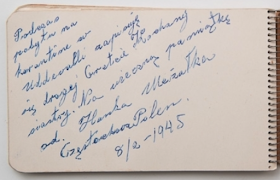 Podczas
pobytu na
kwarantanie w
Uddevalli zapisuję
się drogiej Gretcie
siostry. Na wieczną pamiątkę
od. Hanka
Częstochowa Polen.
8/2-1945